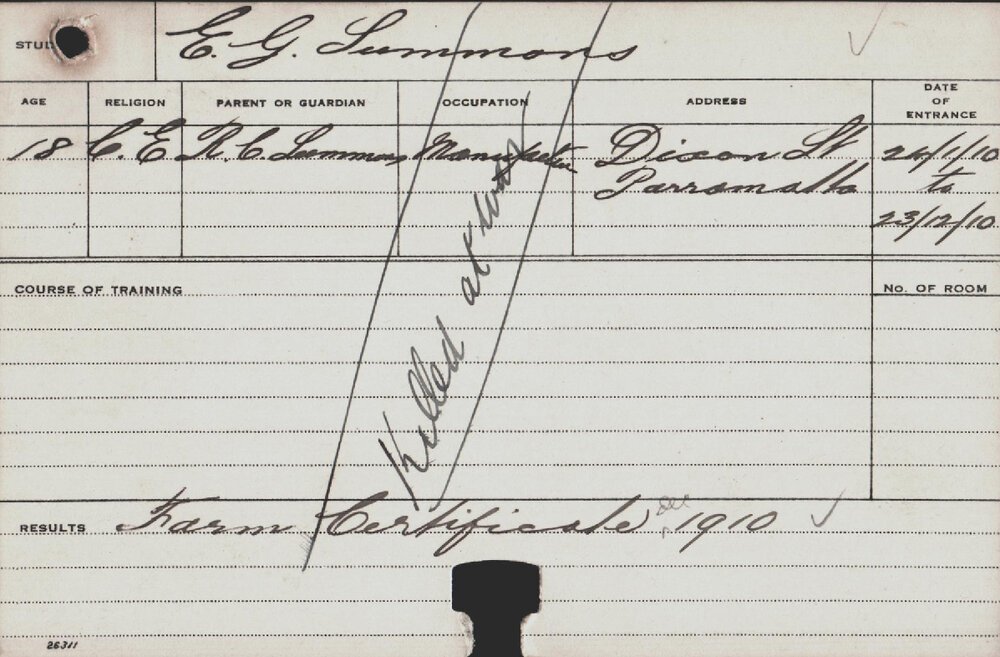 STUD E. G. Summons
AGE RELIGION PARENT OR GUARDIAN OCCUPATION ADDRESS DATE OF ENTRANCE
18 C. E. R. C. Summons Dixon St 24/1/10
Parramatta to
23/12/10
Killed at War
COURSE OF TRAINING No. OF ROOM
RESULTS Farm Certificate Dec 1910
26311